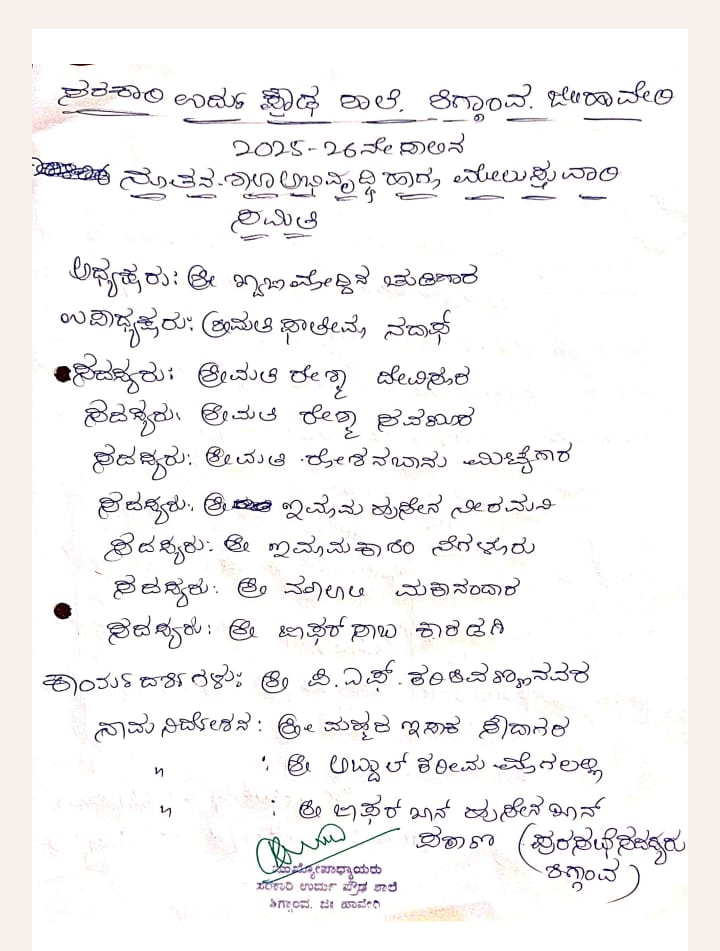 ಸರಕಾರಿ ಉರ್ದು ಪ್ರೌಢ ಶಾಲೆ. ಶಿಗ್ಗಾಂವ. ಜಿ:ಹಾವೇರಿ
2025-26ನೇ ಸಾಲಿನ
ನೂತನ ಶಾಲಾ ಅಭಿವೃದ್ಧಿ ಹಾಗೂ ಮೇಲುಸ್ತುವಾರಿ
ಸಮಿತಿ
ಅಧ್ಯಕ್ಷರು: ಶ್ರೀ ಖ್ವಾಜಾಮೋದ್ದಿನ
ಉಪಾಧ್ಯಕ್ಷರು: ಶ್ರೀಮತಿ ಫಾತೀಮಾ ನದಾಫ್
ಸದಸ್ಯರು: ಶ್ರೀಮತಿ ರೇಶ್ಮಾ ದೇವಿಸೂರ
ಸದಸ್ಯರು: ಶ್ರೀಮತಿ ರೇಶ್ಮಾ ಸವಣೂರ
ಸದಸ್ಯರು: ಶ್ರೀಮತಿ ರೋಶನಬಾನು ಮಿಠಾಯಿಗಾರ
ಸದಸ್ಯರು: ಶ್ರೀ ಇಮಾಮಹುಸೇನ ನೀರಮನಿ
ಸದಸ್ಯರು: ಶ್ರೀ ಇಮಾಮಕಾಶಿಂ ನೆಗಳೂರು
ಸದಸ್ಯರು: ಶ್ರೀ ಮಕಾನದಾರ
ಸದಸ್ಯರು: ಶ್ರೀ ಜಾಫರ್ ಸಾಬ ಕಾರಡಗಿ
ಕಾರ್ಯದರ್ಶಿಗಳು: ಶ್ರೀ ಪಿ.ಎಫ್. ಕರಿಶಿವಣ್ಣನವರ
ನಾಮ ನಿರ್ದೇಶನ: ಶ್ರೀ ಇಸಾಕ ಸೌದಾಗರ
〃 : ಶ್ರೀ ಅಬ್ದುಲ್ ಕರೀಮ ಮೊಗಲಲ್ಲಿ
〃 : ಶ್ರೀ ಜಾಫರ್ ಖಾನ್ ಹುಸೇನ ಖಾನ್
ಪಠಾಣ (ಪುರಸಭೆ ಸದಸ್ಯರು
ಶಿಗ್ಗಾಂವ)
ಮುಖ್ಯೋಪಾಧ್ಯಾಯರು
ಸರಕಾರಿ ಉರ್ದು ಪ್ರೌಢ ಶಾಲೆ
ಶಿಗ್ಗಾಂವ. ಜಿ: ಹಾವೇರಿ